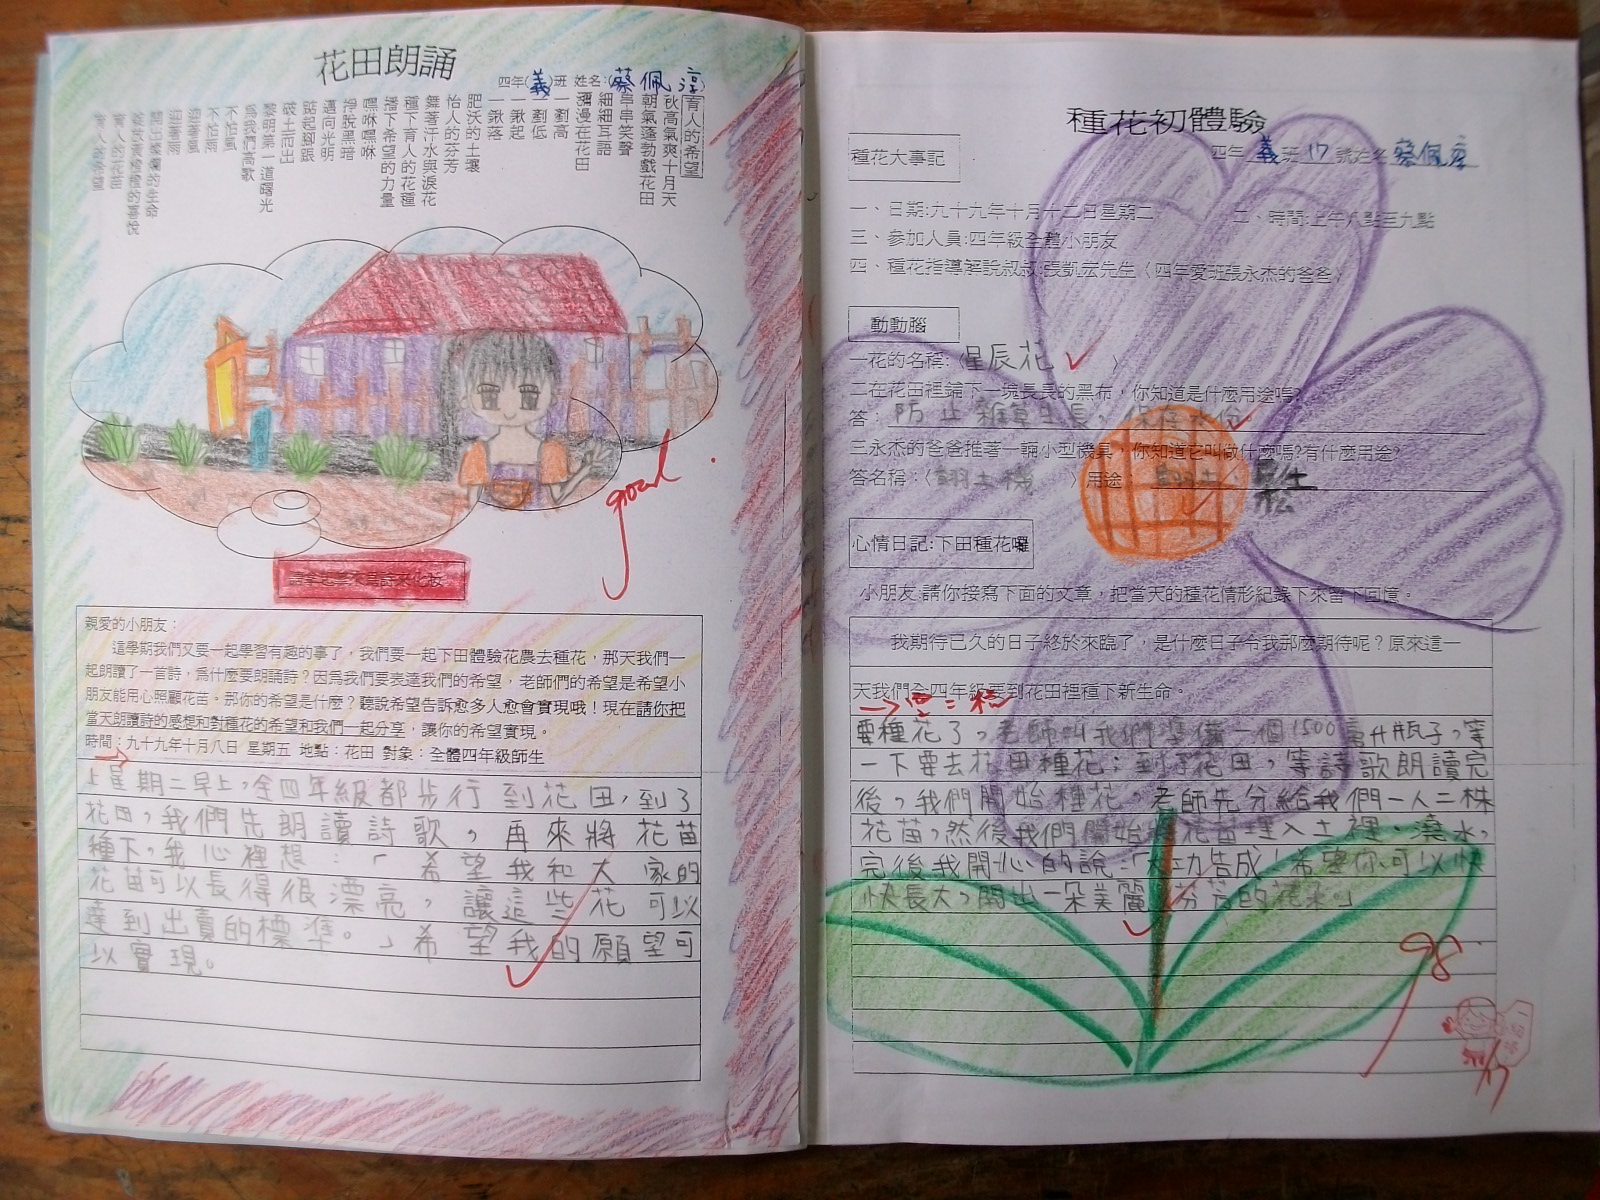 花田朗誦
四年(義)班 姓名:(蔡佩淳)
育人的希望
秋高氣爽十月天
朝氣蓬勃戲花田
串串笑聲
細細耳語
瀰漫在花田
一劃高
一劃低
一鍬起
一鍬落
肥沃的土壤
怡人的芬芳
舞著汗水與淚花
種下育人的花種
播下希望的力量
嘿咻嘿咻
掙脫黑暗
邁向光明
踮起腳跟
破土而出
黎明第一道曙光
為我們高歌
不怕風
不怕雨
迎著風
迎著雨
開出燦爛的生命
育人的花苗
育人的希望
good
親愛的小朋友：
這學期我們又要一起學習有趣的事了，我們要一起下田體驗花農去種花，那天我們一
起朗讀了一首詩，為什麼要朗誦詩？因為我們要表達我們的希望，老師們的希望是希望小
朋友能用心照顧花苗。那你的希望是什麼？聽說希望告訴愈多人愈會實現哦！現在請你把
當天朗讀詩的感想和對種花的希望和我們一起分享，讓你的希望實現。
時間：九十九年十月八日 星期五 地點：花田 對象：全體四年級師生
上星期二早上，全四年級都步行到花田，到了
花田，我們先朗讀詩歌，再來將花苗
種下，我心裡想：「希望我和大家的
花苗可以長得很漂亮，讓這些花可以
達到出賣的標準。」希望我的願望可
以實現。
種花初體驗
四年 義班 17 號姓名 蔡佩淳
種花大事記
一、日期:九十九年十月十二日星期二 二、時間:上午八點至九點
三、參加人員:四年級全體小朋友
四、種花指導解說叔叔:張凱宏先生（四年愛班張永杰的爸爸）
動動腦
一花的名稱:（星辰花）
二在花田裡鋪下一塊長長的黑布，你知道是什麼用途嗎?
答：防止雜草生長，保持水份
三永杰的爸爸推著一輛小型機具，你知道它叫做什麼嗎?有什麼用途?
答名稱：（翻土機）用途： 鬆土
心情日記:下田種花囉
小朋友:請你接寫下面的文章，把當天的種花情形紀錄下來留下回憶。
我期待已久的日子終於來臨了，是什麼日子令我那麼期待呢？原來這一
天我們全四年級要到花田裡種下新生命。
要種花了，老師叫我們準備一個1500毫升瓶子，等
一下要去花田種花；到了花田，等詩歌朗讀完
後，我們開始種花，老師先分給我們一人二株
花苗，然後我們開始將花苗埋入土裡、澆水，
完後我開心的說：「大功告成！希望你可以快
快長大，開出一朵美麗芬芳的花朵。」
98